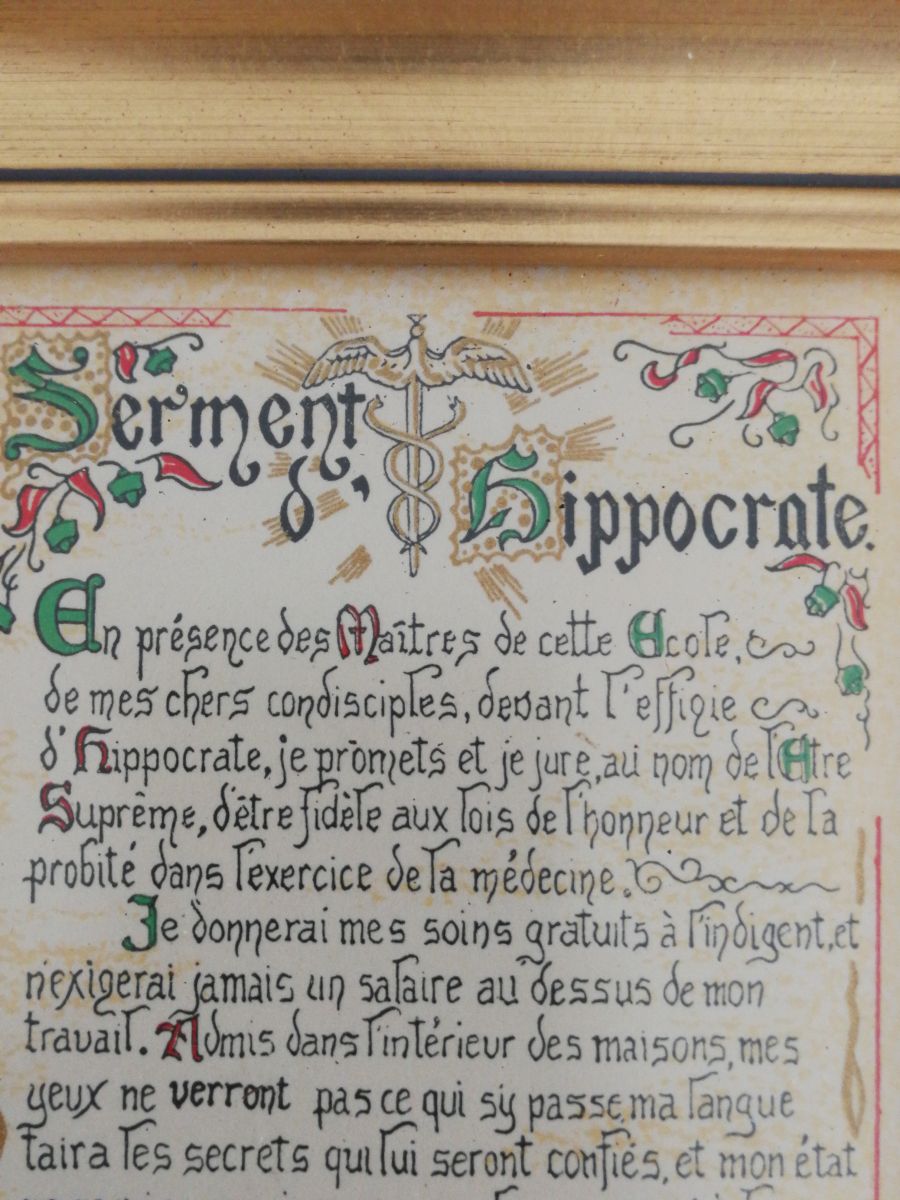 Serment
d'Hippocrate.
En présence des Maîtres de cette Ecole,
de mes chers condisciples, devant l'effigie
d'Hippocrate, je promets et je jure, au nom de l'Etre
Suprême, d'être fidèle aux lois de l'honneur et de la
probité dans l'exercice de la médecine.
Je donnerai mes soins gratuits à l'indigent, et
n'exigerai jamais un salaire au dessus de mon
travail. Admis dans l'intérieur des maisons, mes
yeux ne verront pas ce qui s'y passe, ma langue
taira les secrets qui lui seront confiés, et mon état